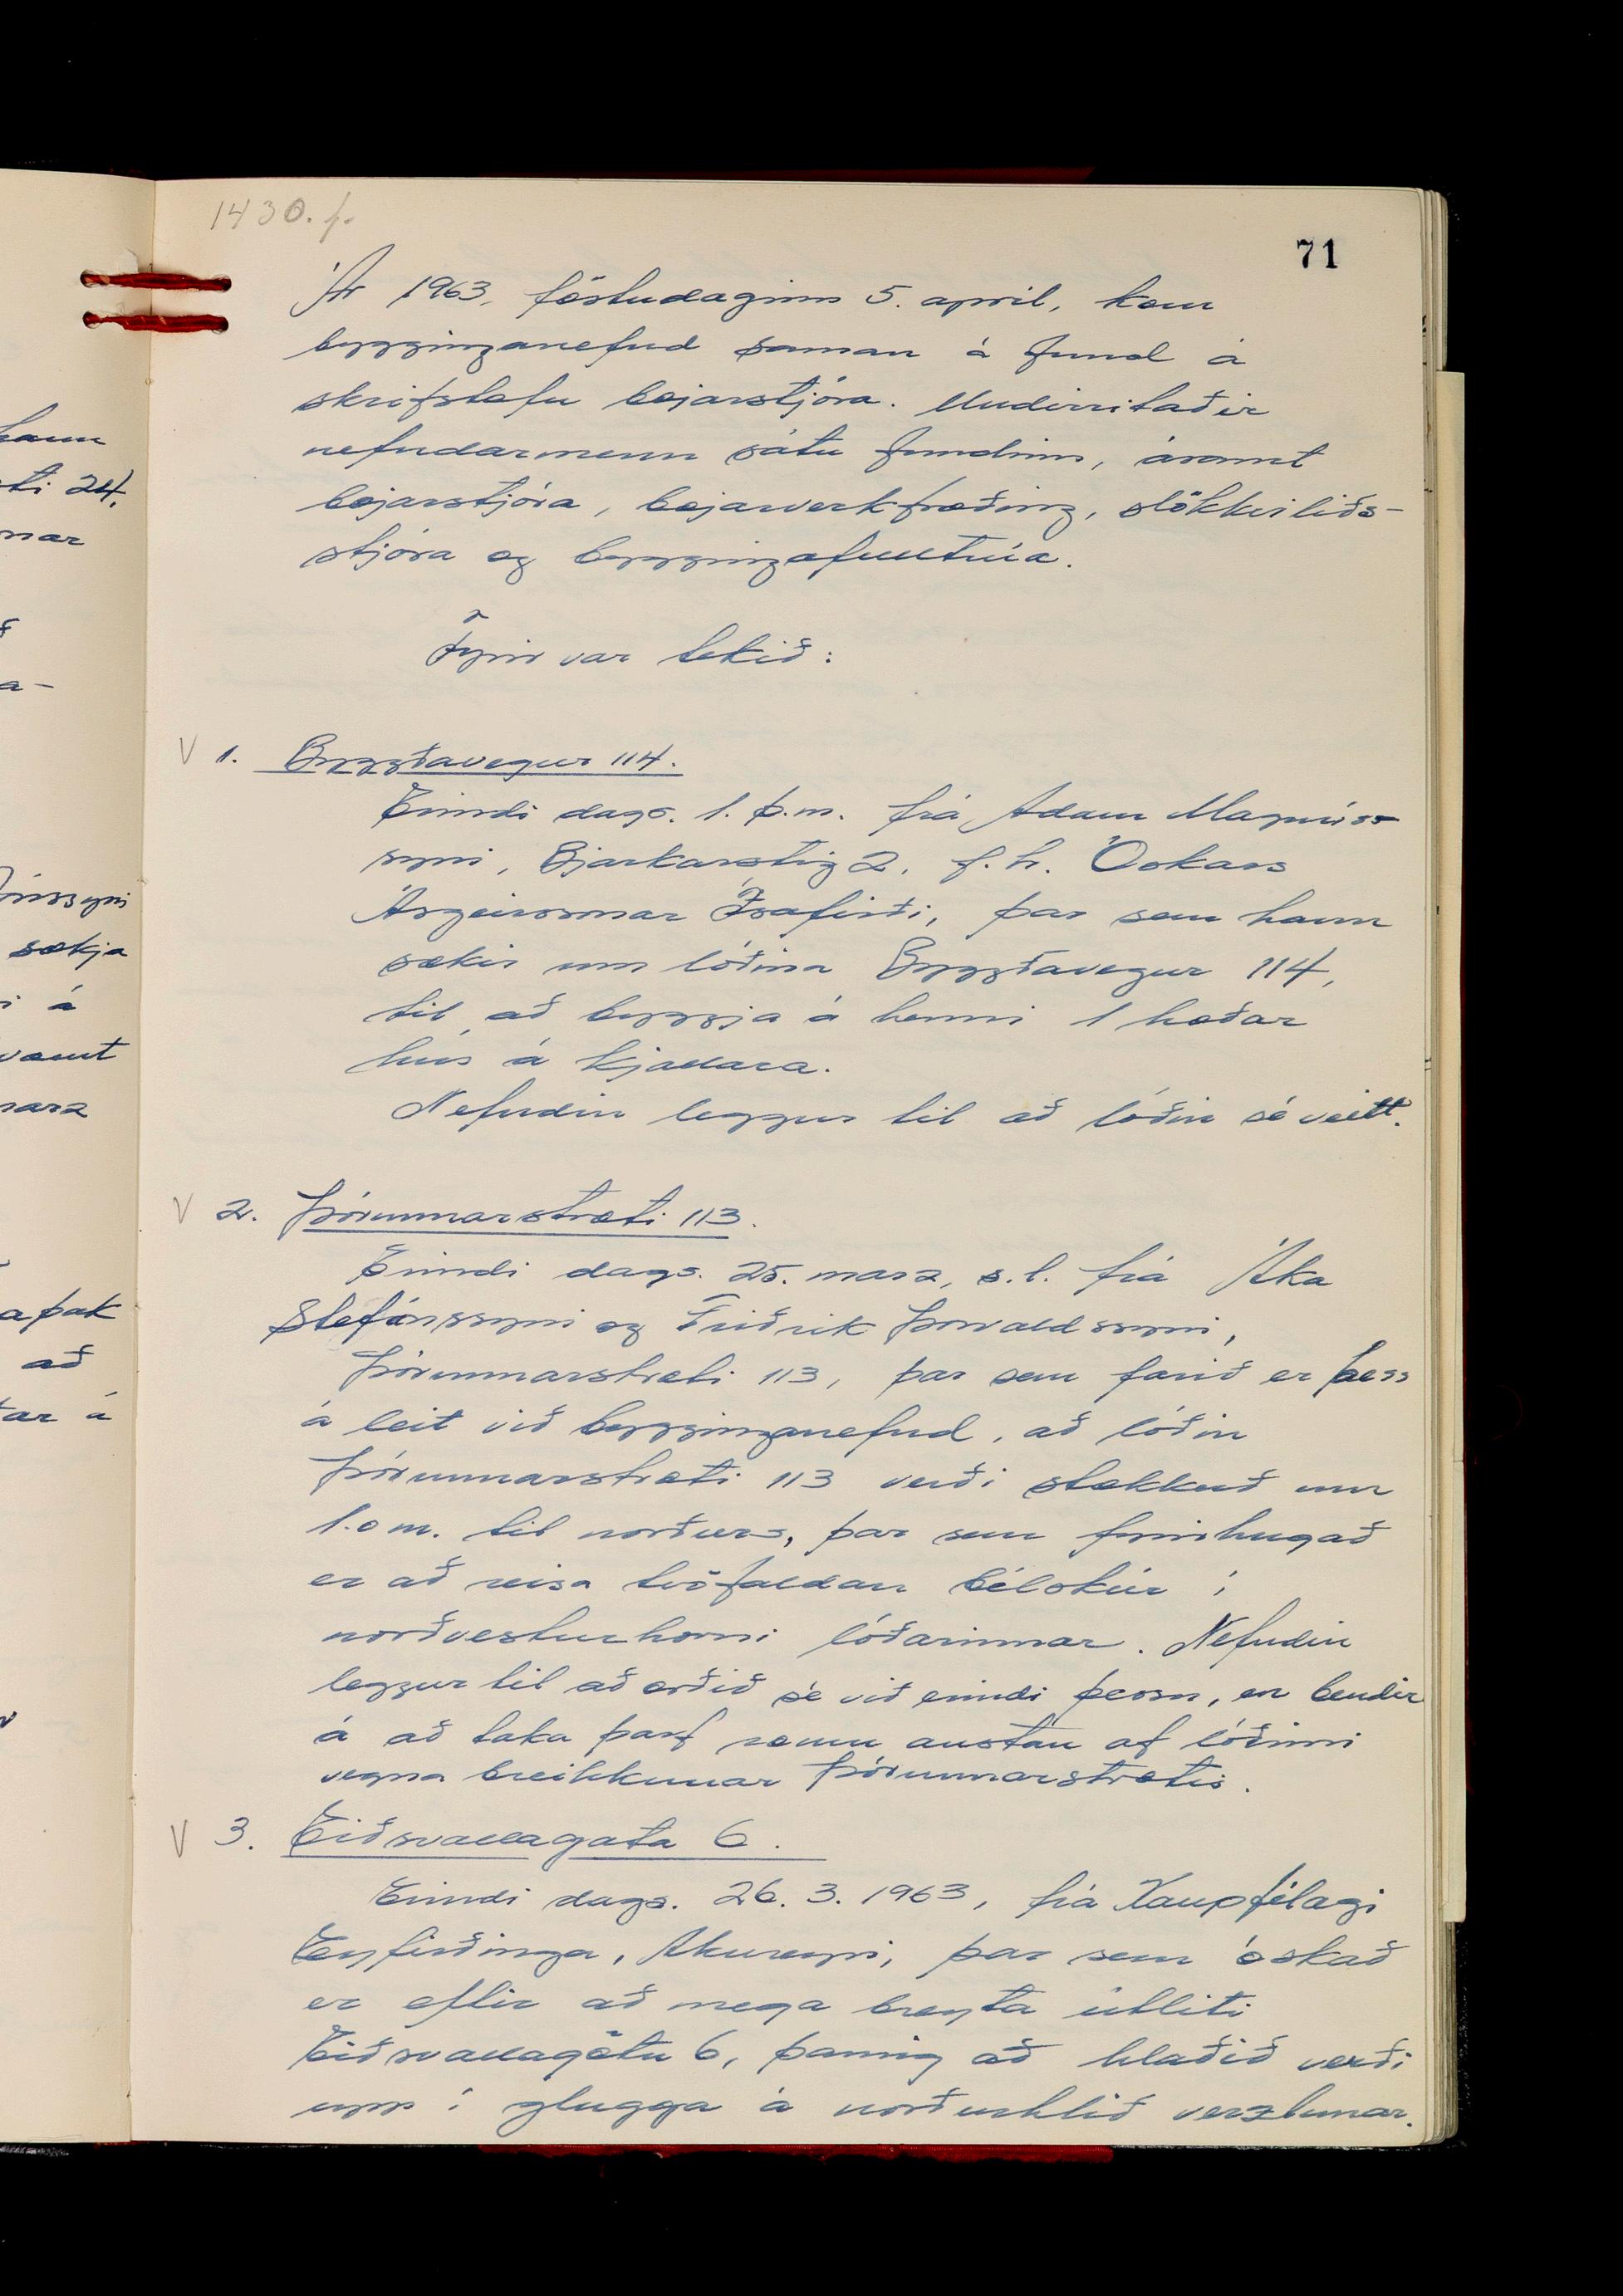 1430. f.
71
Ár 1963, föstudaginn 5. apríl, kom
bygginganefnd saman á fund á
skrifstofu bæjarstjóra. Undirritaðir
nefndarmenn sátu fundinn, ásamt
bæjarstjóra, bæjarverkfræðing, slökkviliðs-
stjóra og byggingafulltrúa.
Fyrir var tekið:
V 1. Byggðavegur 114.
Erindi dags. 1. þ.m. frá Adam Magnúss
syni, Bjarkarstíg 2, f.h. Óskars
Ásgeirssonar Ísafirði, þar sem hann
sækir um lóðina Byggðavegur 114,
til að byggja á henni 1 hæðar
hús á kjallara.
Nefndin leggur til að lóðin sé veitt.
V 2. Þórunnarstræti 113.
Erindi dags. 25. marz, s.l. frá Áka
Stefánssyni og Friðrik Þorvaldssyni,
Þórunnarstræti 113, þar sem farið er þess
á leit við bygginganefnd, að lóðin
Þórunnarstræti 113 verði stækkuð um
1.0 m. til norðurs, þar sem fyrirhugað
er að reisa tvöfaldan bílskúr í
norðvesturhorni lóðarinnar. Nefndin
leggur til að orðið sé við erindi þessu, en bendir
á að taka þarf ræmu austan af lóðinni
vegna breikkunar Þórunnarstrætis.
V 3. Eiðsvallagata 6.
Erindi dags. 26. 3. 1963, frá Kaupfélagi
Eyfirðinga, Akureyri, þar sem óskað
er eftir að mega breyta útliti
Eiðsvallagötu 6, þannig að hlaðið verði
upp í glugga á norðurhlið verzlunar.
hann
sti 24,
nar
a-
ónssyni
sækja
i á
vamt
marz
aþak
að
tar á